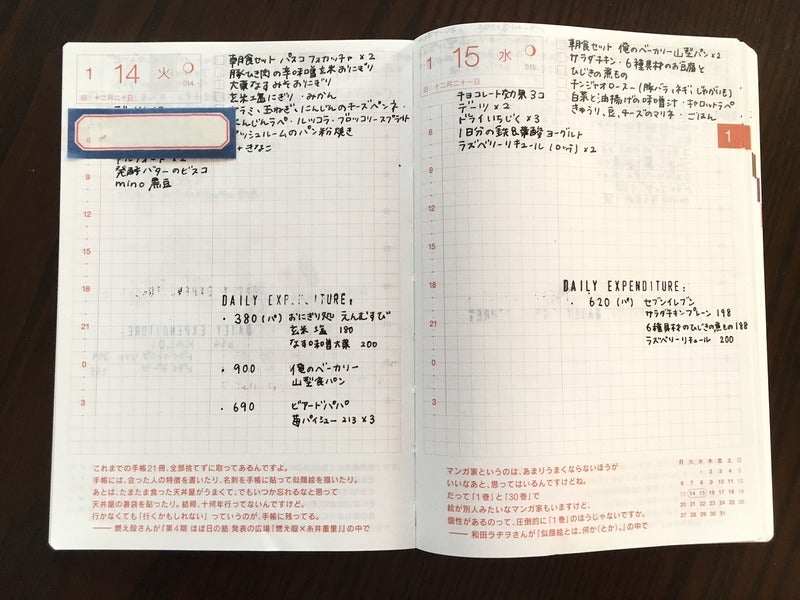 1 14 火
034
旧:十二月二十日
朝食セット パスコ フォカッチャ×2
豚ひき肉の辛味噌玄米おにぎり
大葉なすみそおにぎり
玄米塩にぎり・みかん
玉ねぎ、にんじんのチーズペンネ
にんじんラペ・ルッコラ・ブロッコリースプラウト
マッシュルームのパン粉焼き
きなこ
×2
発酵バターのビスコ
mino 黒豆
6
9
12
15
18
21
0
3
DAILY EXPENDITURE:
・380(パ) おにぎり処 えんむすび
玄米 塩 180
なす味噌大葉 200
・900 俺のベーカリー
山型食パン
・690 ビアードパパ
苺パイシュー 213×3
これまでの手帳21冊、全部捨てずに取ってあるんですよ。
手帳には、会った人の特徴を書いたり、名刺を手帳に貼って似顔絵を描いたり。
あとは、たまたま食った天丼屋がうまくて、でもいつか忘れるなと思って
天丼屋の箸袋を貼ったり。結局、十何年行ってないんですけど。
行かなくても「行くかもしれない」っていうのが、手帳に残ってる。
―― 燃え殻さんが『第4期 ほぼ日の塾 発表の広場「燃え殻×糸井重里」』の中で
1 15 水
015
旧:十二月二十一日
朝食セット 俺のベーカリー山型パン×2
サラダチキン・6種具材のお豆腐と
ひじきの煮もの
チンジャオロース(豚バラ、ネギ、じゃがいも)
白菜と油揚げの味噌汁・キャロットラペ
きゅうり、豆、チーズのマリネ・ごはん
チョコレート効果 3コ
デーツ×2
ドライいちじく×3
1日分の鉄&葉酸ヨーグルト
ラズベリーリキュール(ロッテ)×2
1
6
9
12
15
18
21
0
3
DAILY EXPENDITURE:
・620(パ) セブンイレブン
サラダチキンプレーン 198
6種具材のひじきの煮もの 188
ラズベリーリキュール 200
マンガ家というのは、あまりうまくならないほうが
いいなあと、思ってはいるんですけどね。
だって「1巻」と「30巻」で
絵が別人みたいなマンガ家もいますけど、
個性があるのって、圧倒的に「1巻」のほうじゃないですか。
―― 和田ラヂヲさんが『似顔絵とは、何か(とか)。』の中で
月 火 水 木 金 土 日
1 2 3 4 5
6 7 8 9 10 11 12
13 14 15 16 17 18 19
20 21 22 23 24 25 26
27 28 29 30 31